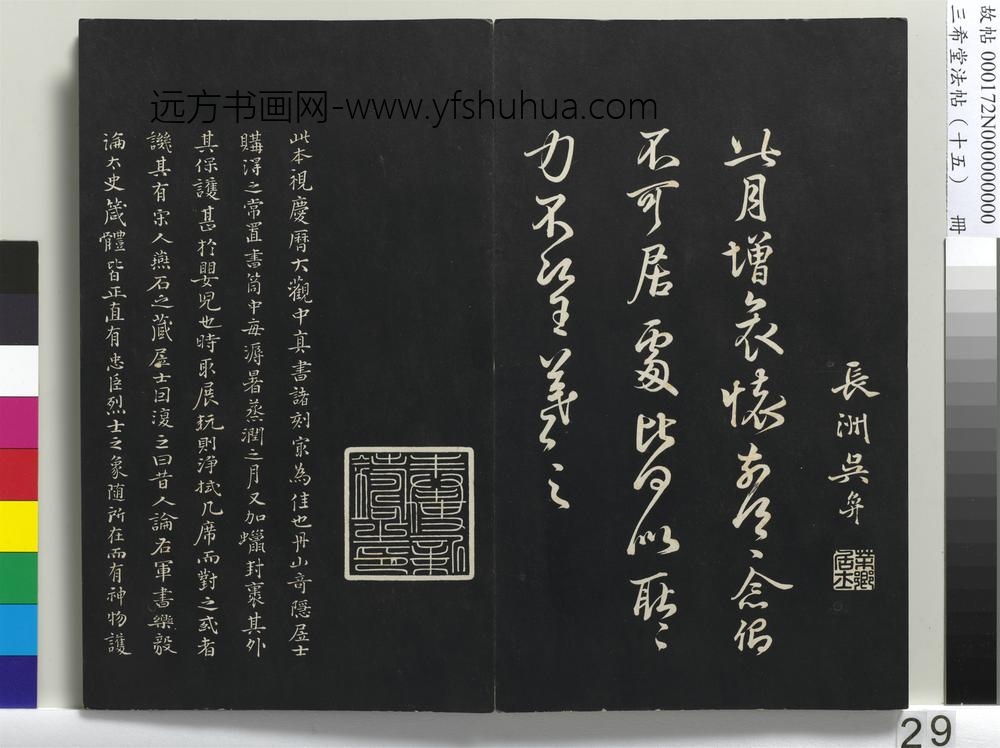 故帖 000172N000000000
三希堂法帖（十五） 冊
远方书画网-www.yfshuhua.com
長洲吳弈
此月增哀懷前
不可居處比日似
力不 羲之
此本視慶曆大觀中真書諸刻寂為佳也丹山竒隱居士
購淂之常置書笥中每溽暑蒸潤之月又加蠟封裹其外
其保護甚於嬰兒也時取展玩則浄拭几席而對之或者
譏其有宋人燕石之藏居士因復之曰昔人論右軍書樂毅
論太史箴體皆正直有忠臣烈士之象随所在而有神物護
29